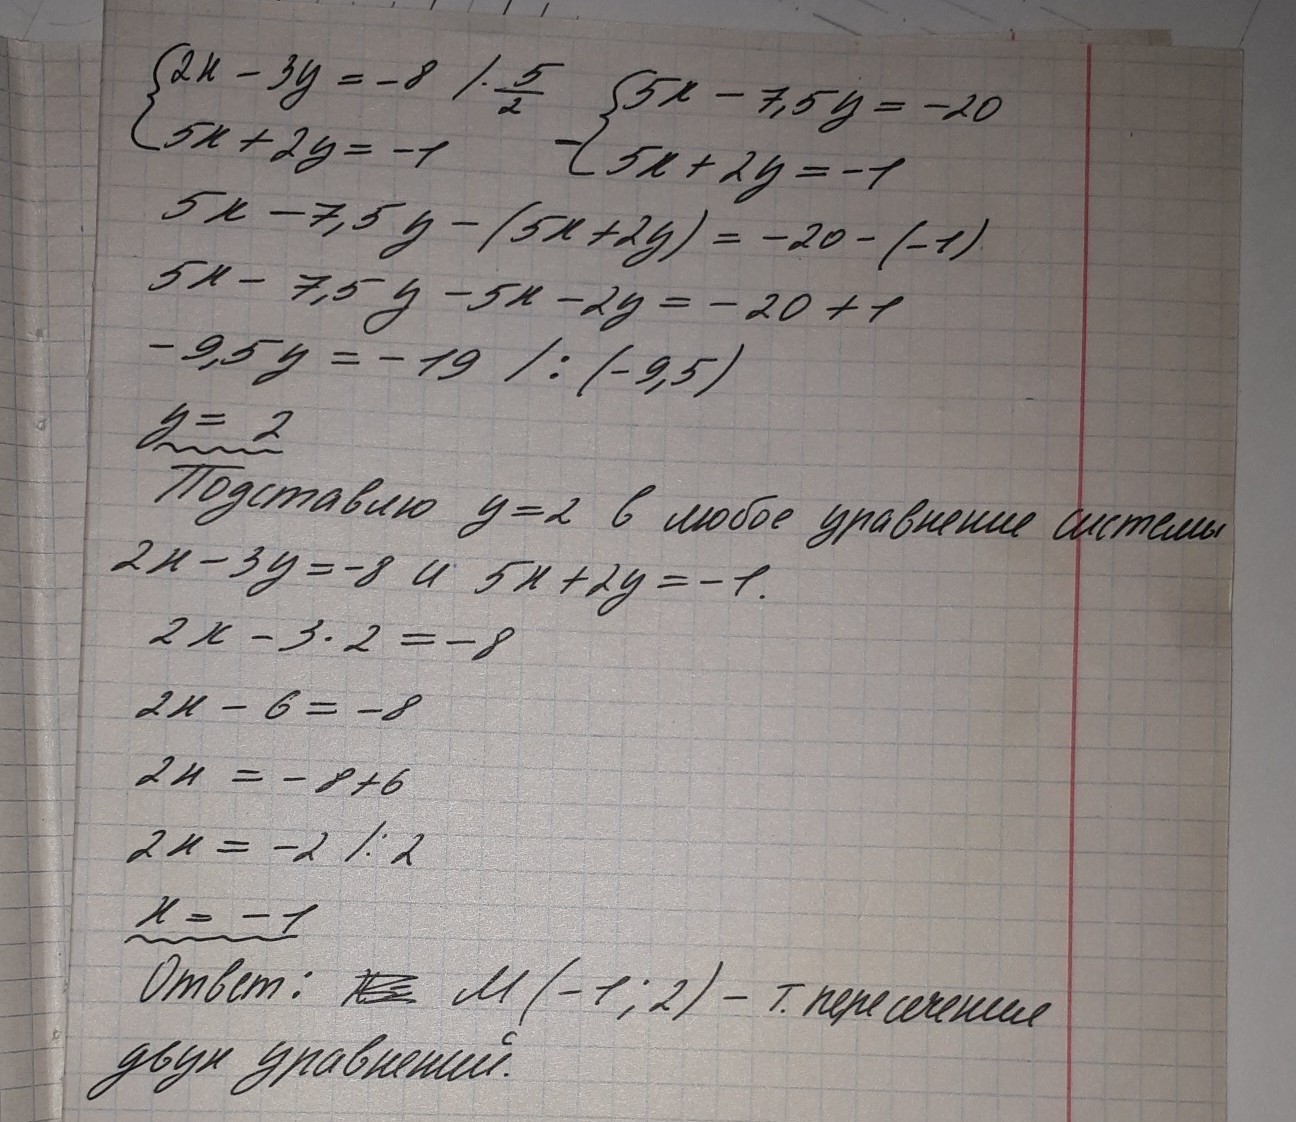 {2x - 3y = -8 /· 5/2   {5x - 7,5y = -20
{5x + 2y = -1   - {5x + 2y = -1
5x - 7,5y - (5x + 2y) = -20 - (-1)
5x - 7,5y - 5x - 2y = -20 + 1
-9,5y = -19 /: (-9,5)
y = 2
Подставлю y = 2 в любое уравнение системы
2x - 3y = -8 и 5x + 2y = -1.
2x - 3·2 = -8
2x - 6 = -8
2x = -8+6
2x = -2 /: 2
x = -1
Ответ: M (-1; 2) - т. пересечение
двух уравнений.